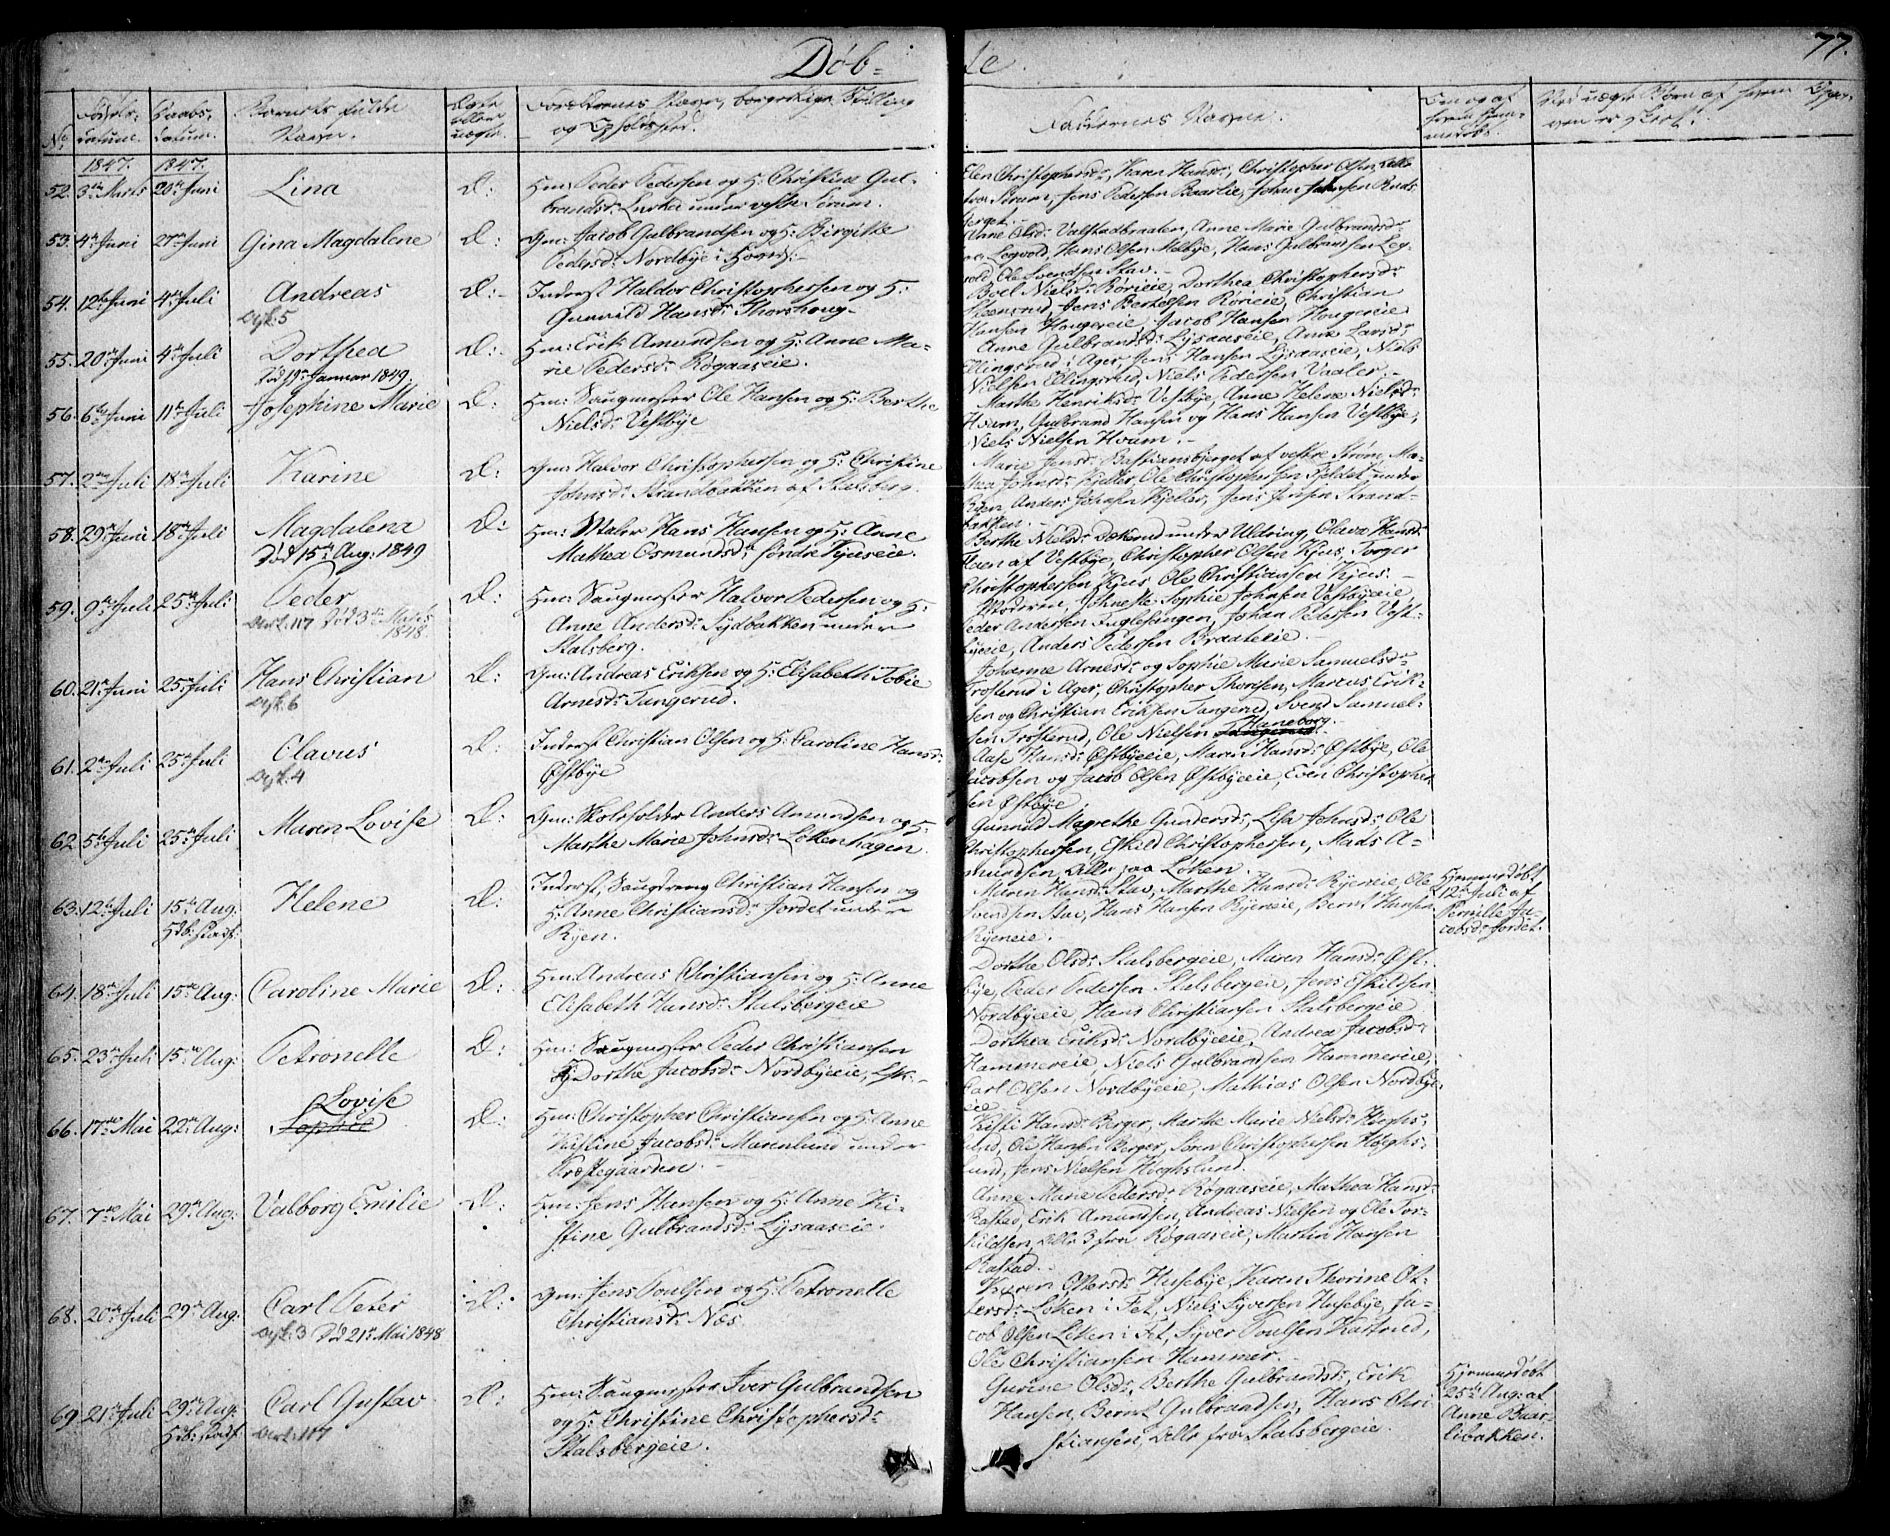 Døb=
te
77.
No
Fødsels-
datum.
Daabs-
datum.
Barnets fulde
Navn.
Ægte
eller
uægte.
Forældrenes Navn, borgerlige Stilling
og Opholdssted.
Faddernes Navne.
1847. 1847.
52. 3die Marts 20de Juni Lina Æ: Gm: Peder Pedersen og H: Christine Gul-
brandsd: Lurka under vestre Sørum.
Elen Christophersd:, Karen Hansd:, Christopher Olsen, alle
fra Sørum, Jens Pedersen Baarlie, Johan Jahnsen Ruds-
berget.
53. 4de Juni 27de Juni Gina Magdalene Æ: Gm: Jacob Gulbrandsen og H: Birgitte
Pedersd: Nordbye i
Anne Olsd: Valstadbraaten, Anne Marie Gulbrandsd:
Legvold, Hans Olsen Melbye, Hans Gulbrandsen Leg-
vold, Ole Svendsen Stav.
54. 12te Juni 4de Juli Andreas Æ: Inderst Haldor Christophersen og H:
Gunnild Hansd: Thorshoug
5
Boel Nielsd: Rørieie, Dorthea Christophersd:
Steensrud, Jens Bertelsen Rørieie, Christian
Hansen Hougereie, Jacob Hansen Hougereie
55. 20de Juni 4de Juli Dorthea Æ: Hm: Erik Amundsen og H: Anne Ma-
rie Pedersd: Røgaaseie.
Død 19de Januar 1849.
Anne Gulbrandsd: Lysaaseie, Anne Larsd:
Ellingsrud i Ager, Jens Hansen Lysaaseie, Niels
Nielsen Ellingsrud, Niels Pedersen Vaaler.
56. 6te Juni 11te Juli Josephine Marie Æ: Hm: Saugmester Ole Hansen og H: Berthe
Nielsd: Vestbye
Marthe Henriksd: Vestbye, Anne Helene Nielsd:
Hvam, Gulbrand Hansen og Hans Hansen Vestbye,
Niels Nielsen Hvam.
57. 2den Juli 18de Juli Karine Æ: Gm: Halvor Christophersen og H: Christine
Johnsd: Strandbakken af Stalsberg.
Marie Jensd: Bastiansbjerget af vestre Strøm, Ma-
thea Johnsd: Kjeller, Ole Christophersen Fjeldet under
Ryen, Anders Johnsen Kjeller, Jens Jensen Strand-
bakken.
58. 29de Juni 18de Juli Magdalena Æ: Hm: Maler Hans Hansen og H: Anne
Mathea Osmundsd: søndre Tyuseie.
Død 15de Aug: 1849
Berthe Nielsd: Dækend under Uldring, Olava Hansd:
Haen af Vestbye, Christopher Olsen Kjus, Torger
Christophersen Kjus, Ole Christiansen Kjus.
59. 9de Juli 25de Juli Peder Æ: Hm: Saugmester Halvor Pedersen og H:
Anne Andersd: Sydbakken under
Stalsberg.
117 Død 3die Marts
1848.
Moderen, Johneste Sophie Johnsen Vestbyeeie,
Peder Andersen Fuglesangen, Johan Pedersen Vest-
byeeie, Anders Pedersen Braateeie.
60. 21de Juni 25de Juli Hans Christian Æ: Gm: Andreas Eriksen og H: Elisabeth Tobie
Arnesd: Tangerud.
6
Johanne Arnesd: og Sophie Marie Samuelsd:
Trosterud i Ager, Christopher Thorsen, Marcus Erik-
sen og Christian Eriksen Tangerud, Svend Samuel-
sen Trosterud, Ole Nielsen Haneborg.
61. 2den Juli 25de Juli Olavus Æ: Inderst Christian Olsen og H: Caroline Hansd:
Østbye
4
Aase Hansd: Østbyeeie, Maren Hansd: Østbye, Ole
Jacobsen og Jacob Olsen Østbyeeie, Even Christopher-
sen Østbye.
62. 5te Juli 25de Juli Maren Lovise Æ: Gm: Skoleholder Anders Amundsen og H:
Marthe Marie Johnsd: Løkenhagen.
Gunnild Magrethe Gundersd:, Lisa Johnsd:, Ole
Christophersen, Eskild Christophersen, Mads A-
mundsen, alle paa Løken.
63. 12te Juli 15de Aug: Helene Æ: Inderst, Saugdreng Christian Hansen og
H: Anne Christiansd: Jordet under
Ryen.
Maren Hansd: Stav, Marthe Hansd: Ryeneie, Ole
Svendsen Stav, Hans Hansen Ryeneie, Bernt Hansen
Ryeneie.
Hjemmedøbt
12te Juli af
Pernille Ja-
cobsd: Jordet.
64. 18de Juli 15de Aug: Caroline Marie Æ: Hm: Andreas Christiansen og H: Anne
Elisabeth Hansd: Stalsbergeie
Dorthe Olsd: Stalsbergeie, Maren Hansd: Øst-
bye, Peder Pedersen Stalsbergeie, Jens Eskildsen
Nordbyeeie, Hans Christiansen Stalsbergeie
65. 23de Juli 15de Aug: Petronelle Æ: Hm: Saugmester Peder Christiansen
og Dorthe Jacobsd: Nordbyeeie,
Dorthea Eriksd: Nordbyeeie, Andrea Jacobsd:
Hammereie, Niels Gulbrandsen Hammereie,
Carl Olsen Nordbyeeie, Mathias Olsen Nordbye-
eie
66. 17de Mai 22de Aug: Lovise Sophie Æ: Hm: Christopher Christiansen og H: Anne
Kistine Jacobsd: Marenlund under
Præstegaarden.
Kisti Hansd: Berger, Marthe Marie Nielsd: Høeghs-
lund, Ole Hansen Berger, Søren Christophersen Høeghs-
lund, Jens Nielsen Høeghslund.
67. 7de Mai 29de Aug: Valborg Emilie Æ: Hm: Jens Hansen og H: Anne Ki-
stine Gulbrandsd: Lysaaseie.
Anne Marie Pedersd: Røgaaseie, Mathea Hansd:
Rastad, Erik Amundsen, Andreas Nielsen og Ole Tor-
kildsen, alle 3 fra Røgaaseie, Martin Hansen
Rastad.
68. 20de Juli 29de Aug: Carl Peter Æ: Gm: Jens Poulsen og H: Petronelle
Christiansd: Næs.
3 Død 21de Mai 1848
Karen Olsd: Husebye, Karen Thorine Ol-
Løken i Fet, Niels Syversen Husebye, Ja-
cob Olsen Løken i Fet, Syver Poulsen Kastrud,
Ole Christiansen Hammer.
69. 21de Juli 29de Aug: Carl Gustav Æ: Hm: Saugmester Iver Gulbrandsen
og H: Christine Christophersd:
Stalsbergeie.
117
Gurine Olsd:, Berthe Gulbrandsd:, Erik
Hansen, Bernt Gulbrandsen, Hans Chri-
stiansen, alle fra Stalsbergeie.
Hjemmedøbt
25de Aug: af
Anne Baar-
libakken.